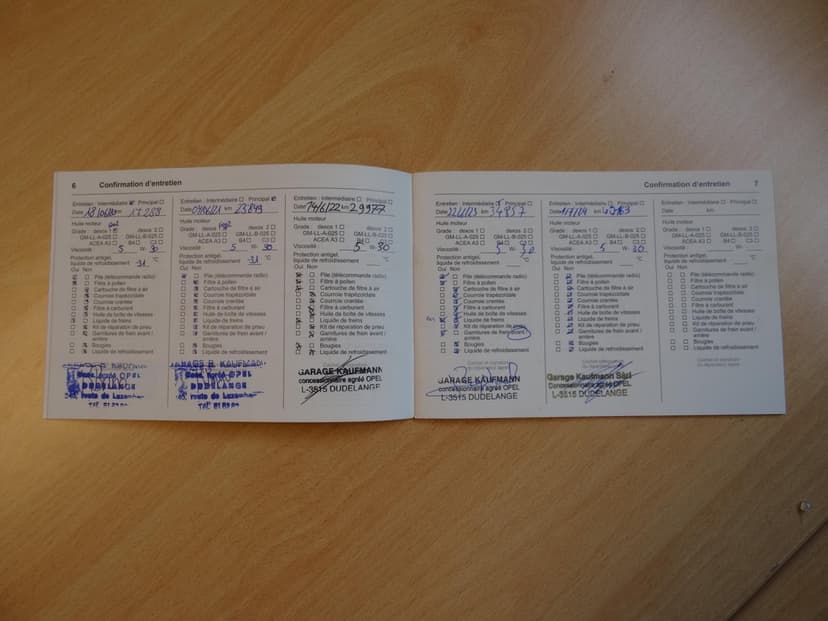 6 Confirmation d'entretien
Entretien : Intermédiaire Principal
Date km 17 258
Huile moteur
Grade : dexos 1 dexos 2
GM-LL-A-025 GM-LL-B-025
ACEA A3 B4 C3
Viscosité : 5 W- 30
Protection antigel,
liquide de refroidissement -31 °C
Oui Non
Pile (télécommande radio)
Filtre à pollen
Cartouche de filtre à air
Courroie trapézoïdale
Courroie crantée
Filtre à carburant
Huile de boîte de vitesses
Liquide de freins
Kit de réparation de pneu
Garnitures de frein avant /
arrière
Bougies
Liquide de refroidissement
DUDELANGE
Entretien : Intermédiaire Principal
Date km 23849
Huile moteur
Grade : dexos 1 dexos 2
GM-LL-A-025 GM-LL-B-025
ACEA A3 B4 C3
Viscosité : 5 W- 30
Protection antigel,
liquide de refroidissement -31 °C
Oui Non
Pile (télécommande radio)
Filtre à pollen
Cartouche de filtre à air
Courroie trapézoïdale
Courroie crantée
Filtre à carburant
Huile de boîte de vitesses
Liquide de freins
Kit de réparation de pneu
Garnitures de frein avant /
arrière
Bougies
Liquide de refroidissement
DUDELANGE
Entretien : Intermédiaire Principal
Date 14/6/22 km 29977
Huile moteur
Grade : dexos 1 dexos 2
GM-LL-A-025 GM-LL-B-025
ACEA A3 B4 C3
Viscosité : 5 W- 30
Protection antigel,
liquide de refroidissement °C
Oui Non
Pile (télécommande radio)
Filtre à pollen
Cartouche de filtre à air
Courroie trapézoïdale
Courroie crantée
Filtre à carburant
Huile de boîte de vitesses
Liquide de freins
Kit de réparation de pneu
Garnitures de frein avant /
arrière
Bougies
Liquide de refroidissement
GARAGE KAUFMANN
concessionnaire agréé OPEL
L-3515 DUDELANGE
Confirmation d'entretien 7
Entretien : Intermédiaire Principal
Date km 34857
Huile moteur
Grade : dexos 1 dexos 2
GM-LL-A-025 GM-LL-B-025
ACEA A3 B4 C3
Viscosité : 5 W- 30
Protection antigel,
liquide de refroidissement °C
Oui Non
Pile (télécommande radio)
Filtre à pollen
Cartouche de filtre à air
Courroie trapézoïdale
Courroie crantée
Filtre à carburant
Huile de boîte de vitesses
Liquide de freins
Kit de réparation de pneu
Garnitures de frein avant /
arrière
Bougies
Liquide de refroidissement
GARAGE KAUFMANN
concessionnaire agréé OPEL
L-3515 DUDELANGE
Entretien : Intermédiaire Principal
Date km
Huile moteur
Grade : dexos 1 dexos 2
GM-LL-A-025 GM-LL-B-025
ACEA A3 B4 C3
Viscosité : 5 W- 30
Protection antigel,
liquide de refroidissement °C
Oui Non
Pile (télécommande radio)
Filtre à pollen
Cartouche de filtre à air
Courroie trapézoïdale
Courroie crantée
Filtre à carburant
Huile de boîte de vitesses
Liquide de freins
Kit de réparation de pneu
Garnitures de frein avant /
arrière
Bougies
Liquide de refroidissement
Garage Kaufmann Sàrl
concessionnaire agréé OPEL
L-3515 DUDELANGE
Entretien : Intermédiaire Principal
Date km
Huile moteur
Grade : dexos 1 dexos 2
GM-LL-A-025 GM-LL-B-025
ACEA A3 B4 C3
Viscosité : W-
Protection antigel,
liquide de refroidissement °C
Oui Non
Pile (télécommande radio)
Filtre à pollen
Cartouche de filtre à air
Courroie trapézoïdale
Courroie crantée
Filtre à carburant
Huile de boîte de vitesses
Liquide de freins
Kit de réparation de pneu
Garnitures de frein avant /
arrière
Bougies
Liquide de refroidissement